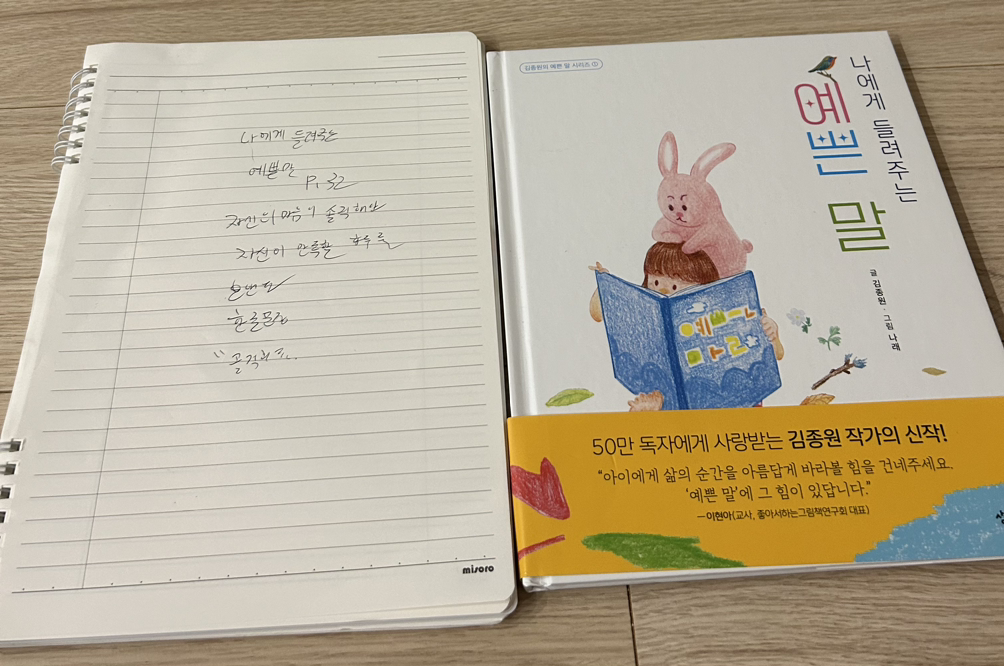 나에게 들려주는
예쁜말
P. 32
자신의 마음이 솔직해야
자신이 하루를
misoro
김종원의 예쁜 말 시리즈 ①
나에게 들려주는
예쁜 말
글 김종원 · 그림 나래
예쁜
말
50만 독자에게 사랑받는 김종원 작가의 신작!
“아이에게 삶의 순간을 아름답게 바라볼 힘을 건네주세요.
‘예쁜 말’에 그 힘이 있답니다.”
—이현아(교사, 좋아서하는그림책연구회 대표)